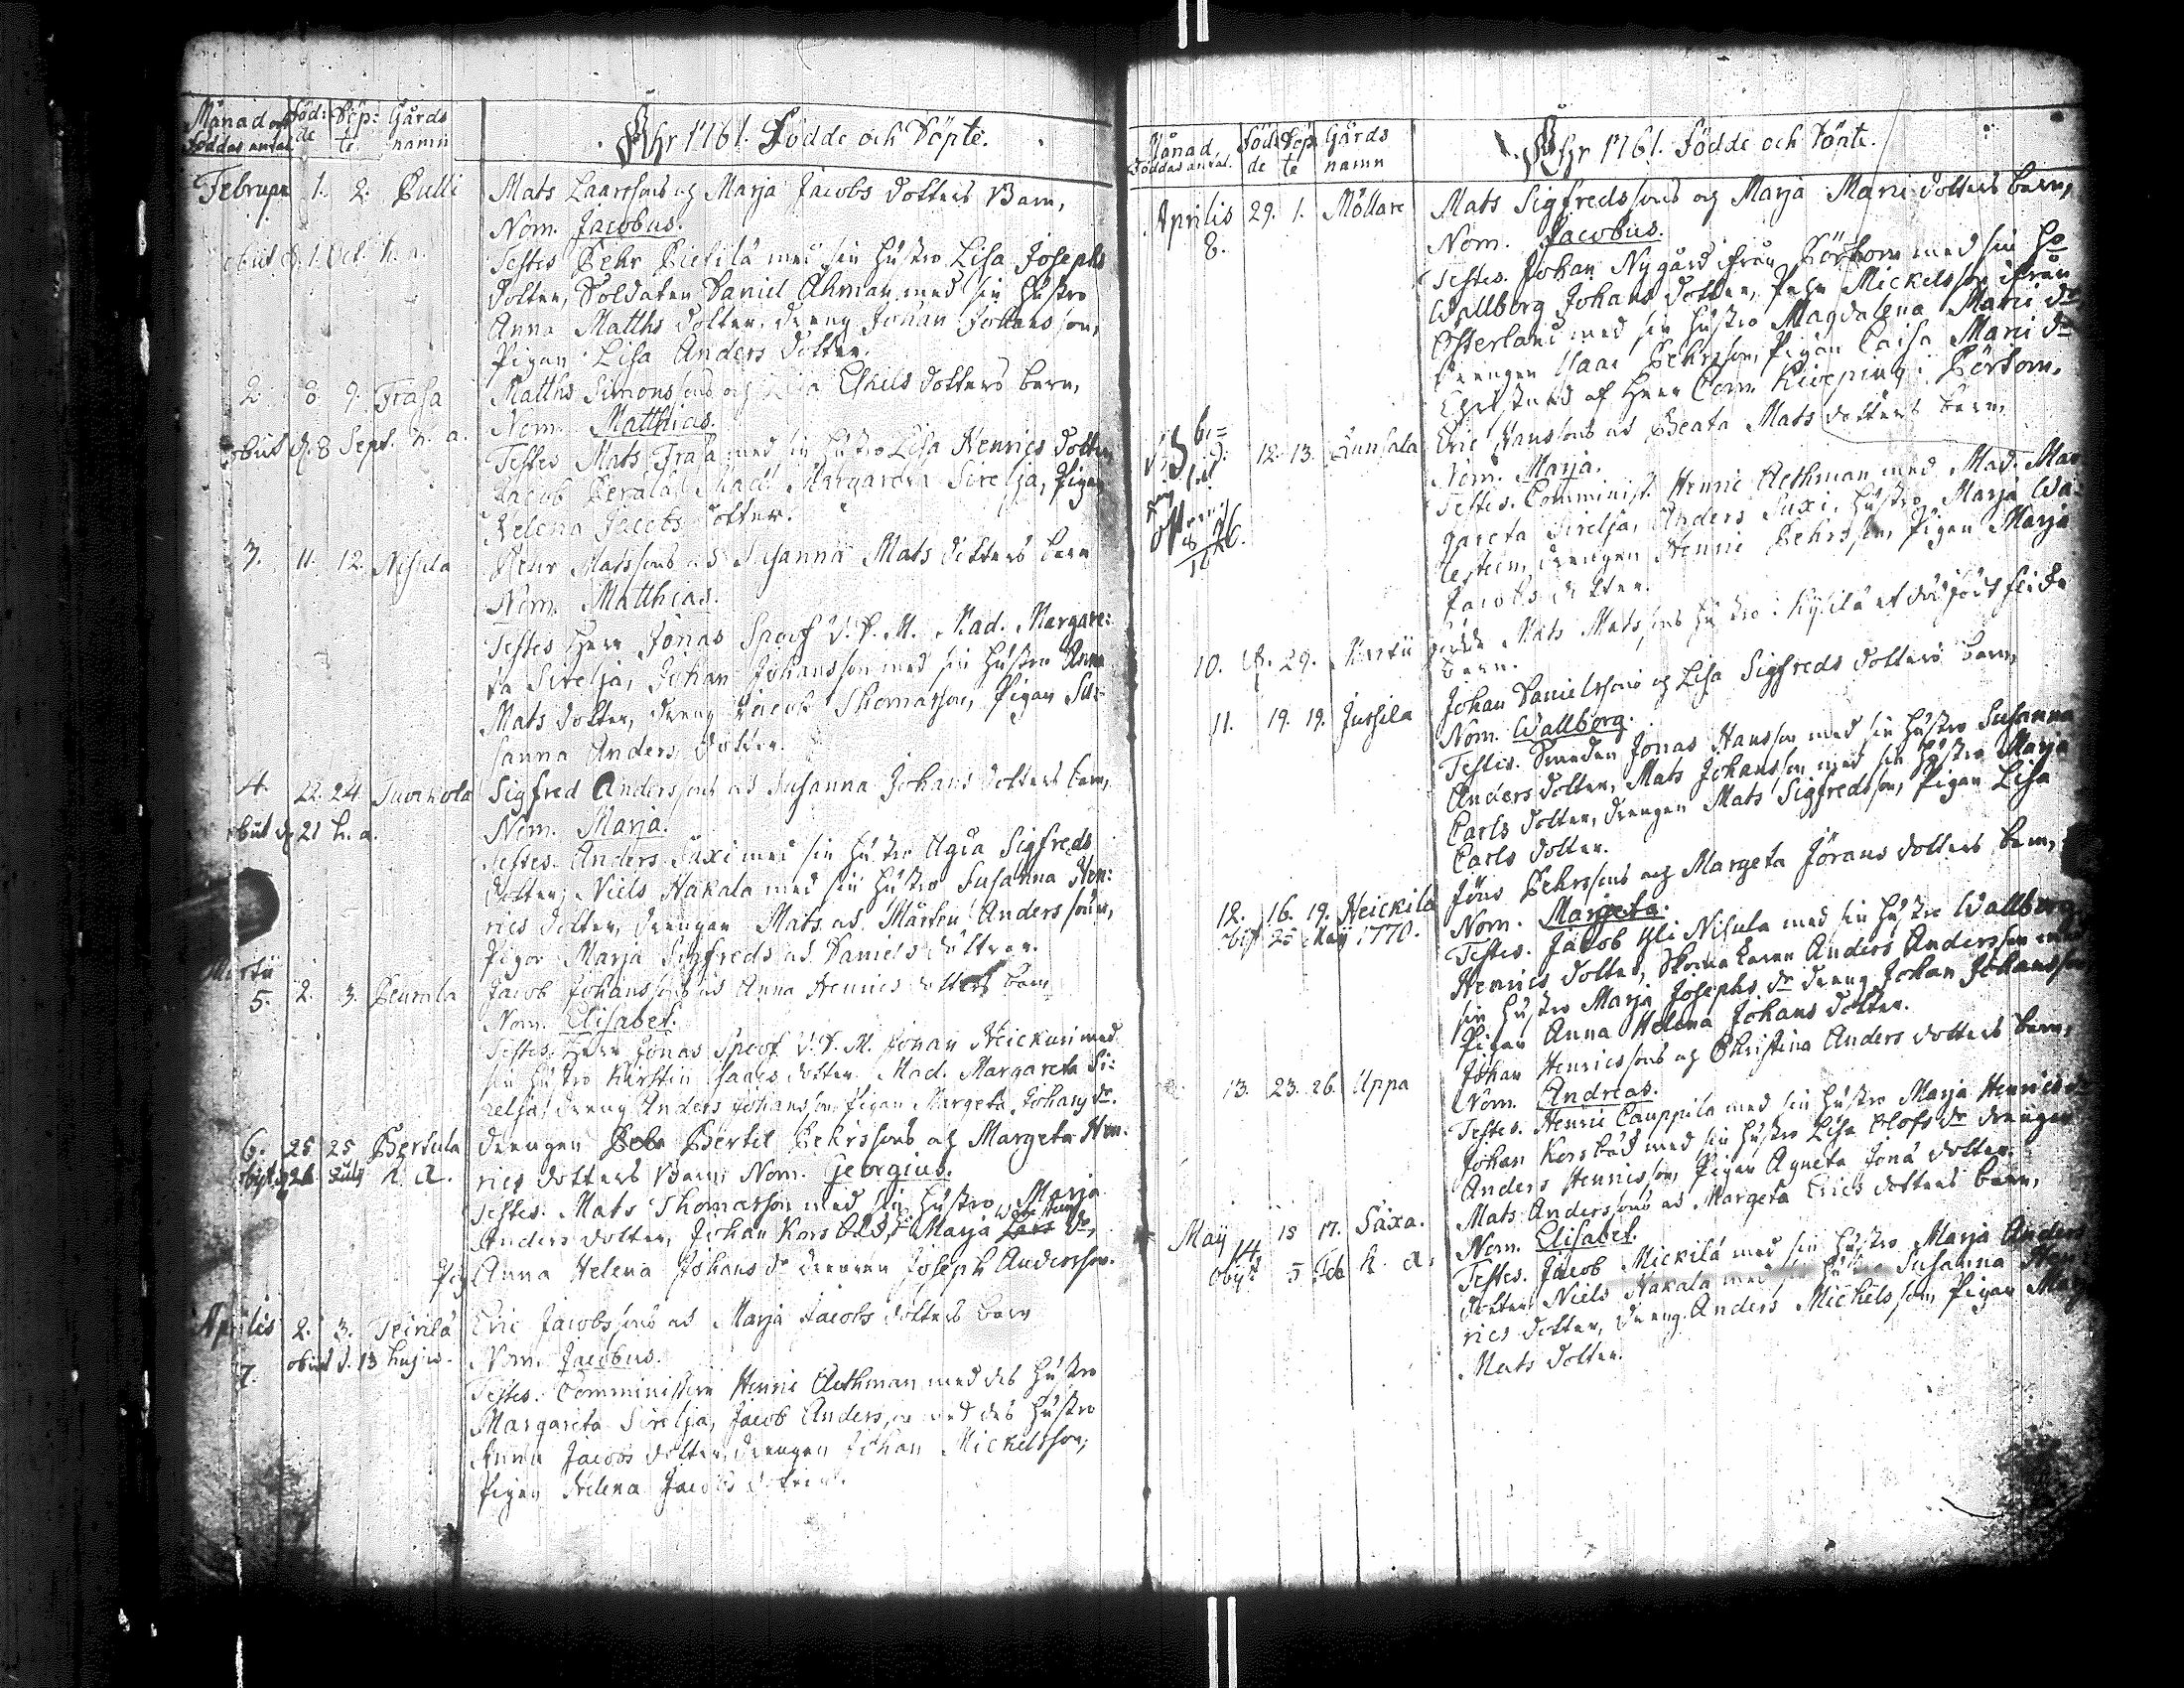 Månad och Föd: Döp: Gårds
föddas antal de te namn
Åhr 1761. Födde och Döpte.
Februarii 1. 2. Pulli Mats Laarssons og Marja Jacobs dotters Barn,
Nom. Jacobus.
obiit d. 1. Oct. h. a. Testes Pehr Pietilä med sin hustro Lisa Josephs
dotter, Soldaten Daniel Åhman med sin hustro
Anna Matths dotter, dreng Johan Johansson,
Pigan Lisa Anders dotter.
2. 8. 9. Frasa Matths Simonssons och Lisa Eskils dotters barn,
Nom. Matthias.
obiit d. 8 Sept. h. a. Testes Mats Frasa med sin hustro Lisa Henrics dotter,
Jacob Perala, Mad. Margareta Sirelja, Pigan
Helena Jacobs dotter.
3. 11. 12. Nisula Pehr Matssons ad Susanna Mats dotters barn
Nom. Matthias.
Testes Herr Jonas Spoof V. P. M. Mad. Margare:
ta Sirelja, Johan Johansson med sin hustro Anna
Mats dotter, dreng Jacob Thomasson, Pigan Su:
sanna Anders dotter.
4. 22. 24. Tuorkola Sigfred Anderssons ad Susanna Johans dotters barn,
obiit d. 21 h. a. Nom. Marja.
Testes. Anders Saxi med sin hustro Agda Sigfreds
dotter, Niels Hakala med sin hustro Susanna Hen:
rics dotter, drengar Mats ad Mårten Anders söner,
Pigor Marja Sigfreds ad Daniels döttrar.
Martii
5. 2. 3. Peurala Jacob Johanssons ad Anna Henrics dotters barn
Nom. Elisabet.
Testes. Herr Jonas Spoof V. P. M. Johan Heickuri med
sin hustro Kirstin Isaacs dotter Mad. Margareta Si:
relja, dreng Anders Johansson, Pigan Margeta Johans dr.
6. 25 25 Bertula drengen Bertil Pehrssons og Margeta Hen.
obijt d. 26 Julij h. a. rics dotters Barn, Nom. Georgius.
Testes. Mats Thomasson med sin hustro Marja
Anders dotter, Johan Korsbäck, Marja dr,
Pig. Anna Helena Johans dr drengen Joseph Andersson.
Aprilis 2. 3. Peirilä Eric Jacobssons ad Marja Jacobs dotters barn
7. obiit d. 13 hujus. Nom. Jacobus.
Testes. Comministern Henric Aethman med des hustro
Margareta Sirelja, Jacob Andersson med des hustro
Anna Jacobs dotter, drengen Johan Mickelsson,
Pigan Helena Jacobs dotter.
Månad Föd Döp Gårds
Föddas antal. de te namn
Åhr 1761. Födde och Döpte.
Aprilis 29. 1. Möllare Mats Sigfredssons og Marja Mari dotters barn,
8. Nom. Jacobus.
Testes. Johan Nygård ifrån Pörtom med sin Ho
Wallborg Johans dotter, Pehr Mickelsson ifrån
Österland med sin hustro Magdalena Mari dr
drengen Isaac Pehrsson, Pigan Caisa Mari dr
Christnad af Herr Com. Kiveping i Pörtom.
9. 12. 13. Lunsala Eric Hanssons ad Beata Mats dotters barn,
Nom. Marja.
Testes. Comminist. Henric Aethman med Mad. Mar
gareta Sirelja, Anders Saxi, hustro Marja Wa
lestein, drengen Henric Pehrsson, Pigan Marja
Jacobs dotter.
10. 29. Martii födde Mats Matssons hustro i Kylilä et dödfödt flicke
barn.
11. 19. 19. Jussila Johan Danielssons og Lisa Sigfreds dotters barn,
Nom. Wallborg.
Testis. Smeden Jonas Hansson med sin hustro Susanna
Anders dotter, Mats Johansson med sin hustro Marja
Carls dotter, drengen Mats Sigfredsson, Pigan Lisa
Carls dotter.
12. 16. 19. Heickilä Jöns Pehrssons og Margeta Jörans dotters barn,
obijt 25 Maij 1770. Nom. Margeta.
Testes. Jacob Yli Nisula med sin hustro Wallborg
Henrics dotter, Skomakaren Anders Andersson med
sin hustro Marja Josephs dr dreng Johan Johansson
Pigan Anna Helena Johans dotter.
13. 23. 26. Uppa Johan Henricssons og Christina Anders dotters barn,
Nom. Andreas.
Testes. Henric Cauppila med sin hustro Marja Henrics dr
Johan Korsbäck med sin hustro Lisa Olofs dr drengen
Anders Henricsson, Pigan Agneta Jona dotter.
Maij 15 17. Säxa. Mats Anderssons ad Margeta Erics dotters barn,
14. Nom. Elisabet.
obijt 5 Feb h. a. Testes. Jacob Mickilä med sin hustro Marja Anders
dotter, Niels Hakala med sin hustro Susanna Hen
rics dotter, dreng. Anders Mickelsson, Pigan Marj
Mats dotter.